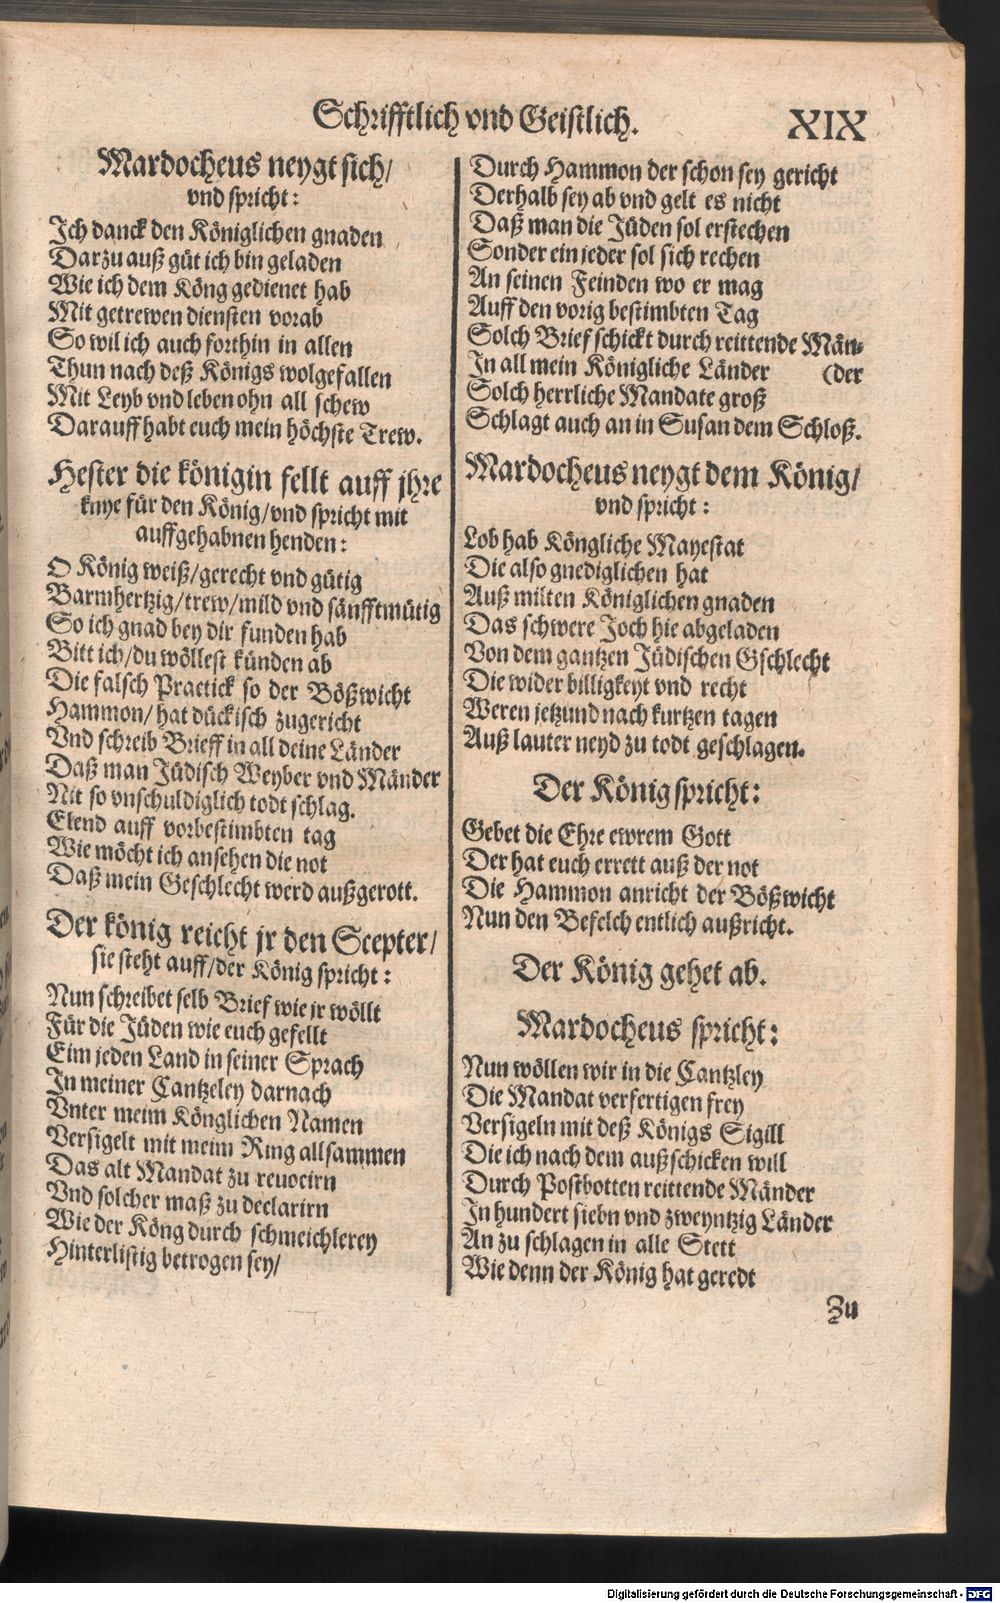 Schrifftlich vnd Geistlich.
XIX
Mardocheus neygt sich/
vnd spricht:
Ich danck den Königlichen gnaden
Darzu auß güt ich bin geladen
Wie ich dem Köng gedienet hab
Mit getrewen diensten vorab
So wil ich auch forthin in allen
Thun nach deß Königs wolgefallen
Mit Leyb vnd leben ohn all schew
Darauff habt euch mein höchste Trew.
Hester die königin fellt auff jhre
knye für den König/vnd spricht mit
auffgehabnen henden:
O König weiß/gerecht vnd gütig
Barmhertzig/trew/mild vnd sänfftmütig
So ich gnad bey dir funden hab
Bitt ich/du wöllest künden ab
Die falsch Practick so der Bößwicht
Hammon/hat dückisch zugericht
Vnd schreib Brieff in all deine Länder
Daß man Jüdisch Weyber vnd Mänder
Nit so vnschuldiglich todt schlag.
Elend auff vorbestimbten tag
Wie möcht ich ansehen die not
Daß mein Geschlecht werd außgerott.
Der könig reicht jr den Scepter/
sie steht auff/der König spricht:
Nun schreibet selb Brief wie jr wöllt
Für die Jüden wie euch gefellt
Eim jeden Land in seiner Sprach
In meiner Cantzeley darnach
Vnter meim Könglichen Namen
Versigelt mit meim Ring allsammen
Das alt Mandat zu reuocirn
Vnd solcher maß zu declarirn
Wie der Köng durch schmeichlerey
Hinterlistig betrogen sey/
Durch Hammon der schon sey gericht
Derhalb sey ab vnd gelt es nicht
Daß man die Jüden sol erstechen
Sonder ein jeder sol sich rechen
An seinen Feinden wo er mag
Auff den vorig bestimbten Tag
Solch Brief schickt durch reittende Män-
In all mein Königliche Länder (der
Solch herrliche Mandate groß
Schlagt auch an in Susan dem Schloß.
Mardocheus neygt dem König/
vnd spricht:
Lob hab Köngliche Mayestat
Die also gnediglichen hat
Auß milten Königlichen gnaden
Das schwere Joch hie abgeladen
Von dem gantzen Jüdischen Gschlecht
Die wider billigkeyt vnd recht
Weren jetzund nach kurtzen tagen
Auß lauter neyd zu todt geschlagen.
Der König spricht:
Gebet die Ehre ewrem Gott
Der hat euch errett auß der not
Die Hammon anricht der Bößwicht
Nun den Befelch entlich außricht.
Der König gehet ab.
Mardocheus spricht:
Nun wöllen wir in die Cantzley
Die Mandat verfertigen frey
Versigeln mit deß Königs Sigill
Die ich nach dem außschicken will
Durch Postbotten reittende Mänder
In hundert siebn vnd zweyntzig Länder
An zu schlagen in alle Stett
Wie denn der König hat geredt
Zu
Digitalisierung gefördert durch die Deutsche Forschungsgemeinschaft - DFG